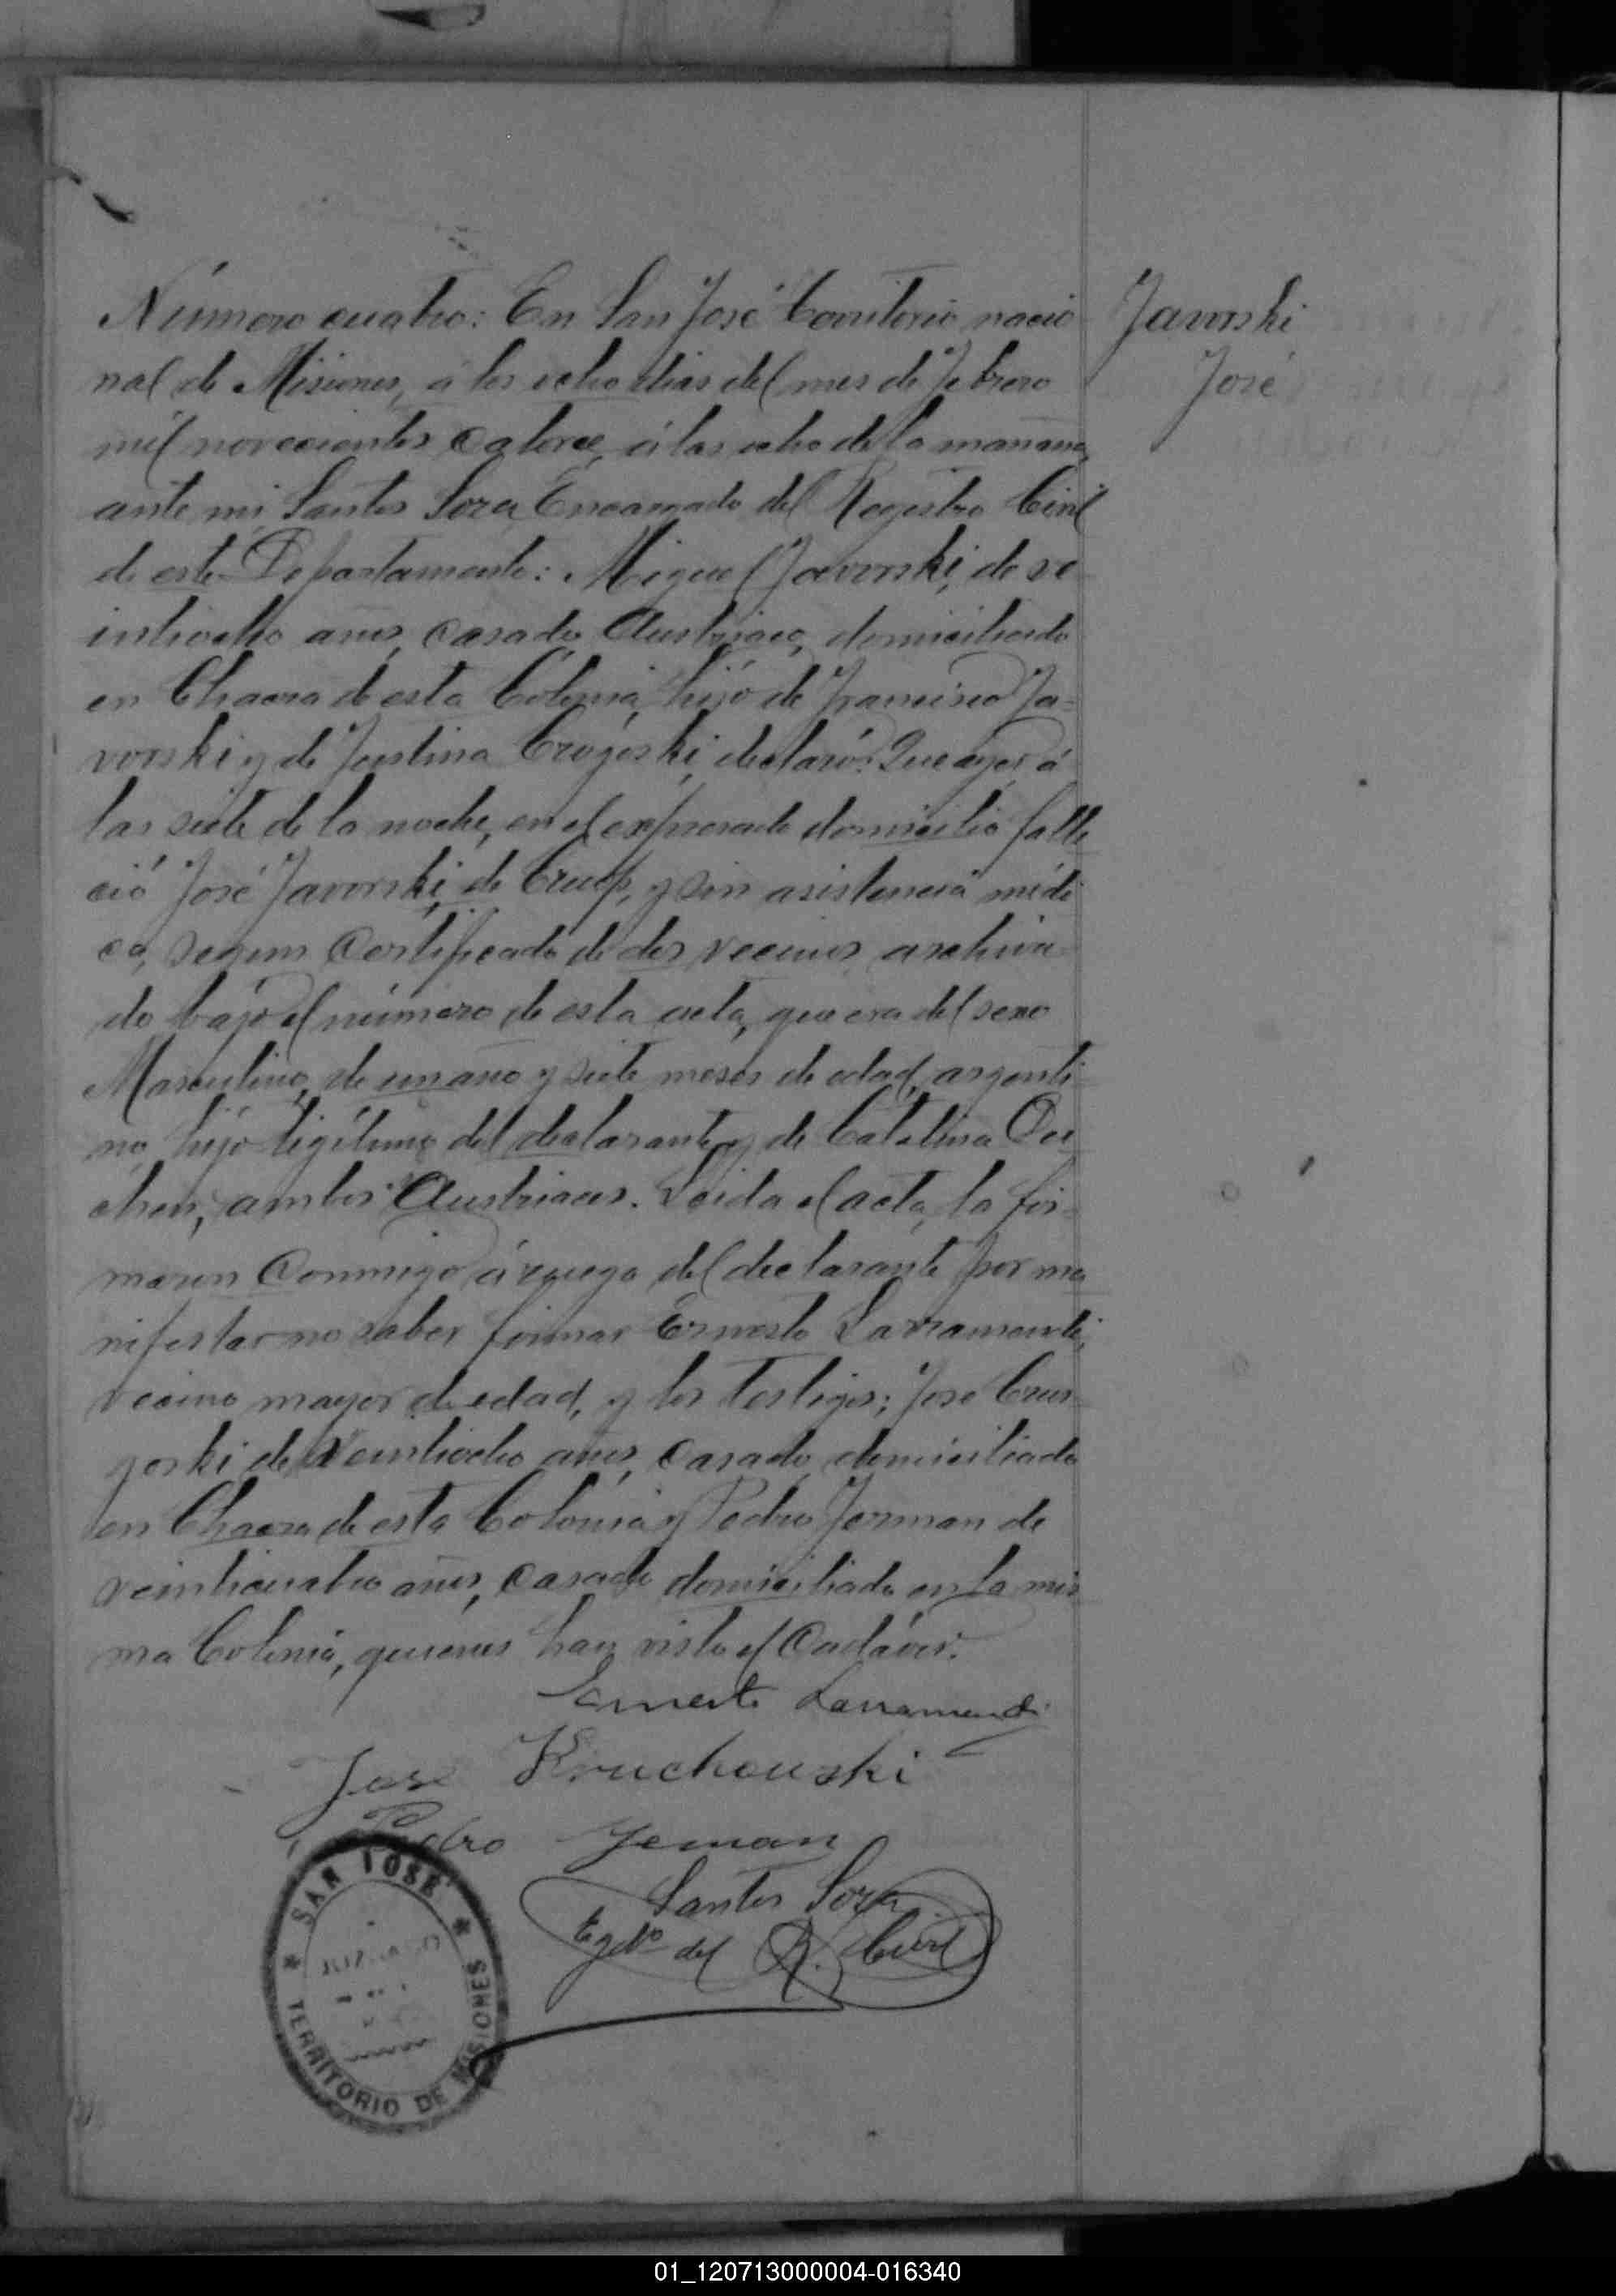 Número cuatro: En San José Territorio nacio
nal de Misiones, á los ocho dias del mes de Febrero
mil novecientos catorce, á las ocho de la mañana,
ante mi, Santos Soza Encargado del Registro Civil
de este Departamento: Miguel Javorski, de ve
intiocho años, casado, Austriaco, domiciliado
en Chacra de esta Colonia, hijo de Francisco Ja=
vorski y de Justina declaró: Que ayer á
las siete de la noche, en el expresado domicilio falle
ció José Javorski, de Crup, y sin asistencia médi
ca, segun certificado de dos vecinos archiva
do bajo el número de esta acta, que era del sexo
Masculino, de un año y siete meses de edad, argenti
no, hijo legítimo del declarante y de Catalina
ambos Austriacos. Leida el acta, la fir=
maron conmigo á ruego del declarante por ma
nifestar no saber firmar Ernesto Larramendi,
vecino mayor de edad, y los testigos; José
de veintiocho años, casado, domiciliado
en Chacra de esta Colonia y Pedro Jerman de
veinticuatro años, casado domiciliado en la mis
ma Colonia, quienes han visto el Cadáver.
Ernesto Larramendi
José Kruchowski
Pedro Jeman
Santos Soza
Egdo del R. Civil
Javorski
José
SAN JOSÉ
TERRITORIO DE MISIONES
01_120713000004-016340